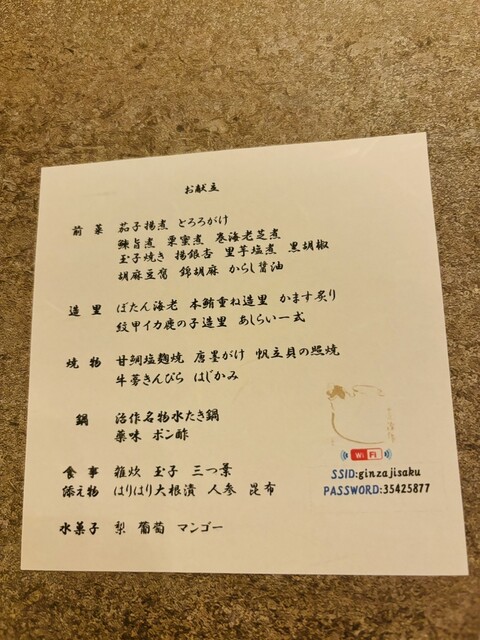 お献立
前菜 茄子揚煮 とろろがけ
鰊旨煮 栗蜜煮 巻海老芝煮
玉子焼き 揚銀杏 里芋塩煮 黒胡椒
胡麻豆腐 錦胡麻 からし醤油
造里 ぼたん海老 本鮪重ね造里 かます炙り
紋甲イカ鹿の子造里 あしらい一式
焼物 甘鯛塩麹焼 唐墨がけ 帆立貝の照焼
牛蒡きんぴら はじかみ
鍋 治作名物水たき鍋
薬味 ポン酢
食事 雑炊 玉子 三つ葉
添え物 はりはり大根漬 人参 昆布
水菓子 梨 葡萄 マンゴー
WiFi
SSID:ginzajisaku
PASSWORD:35425877